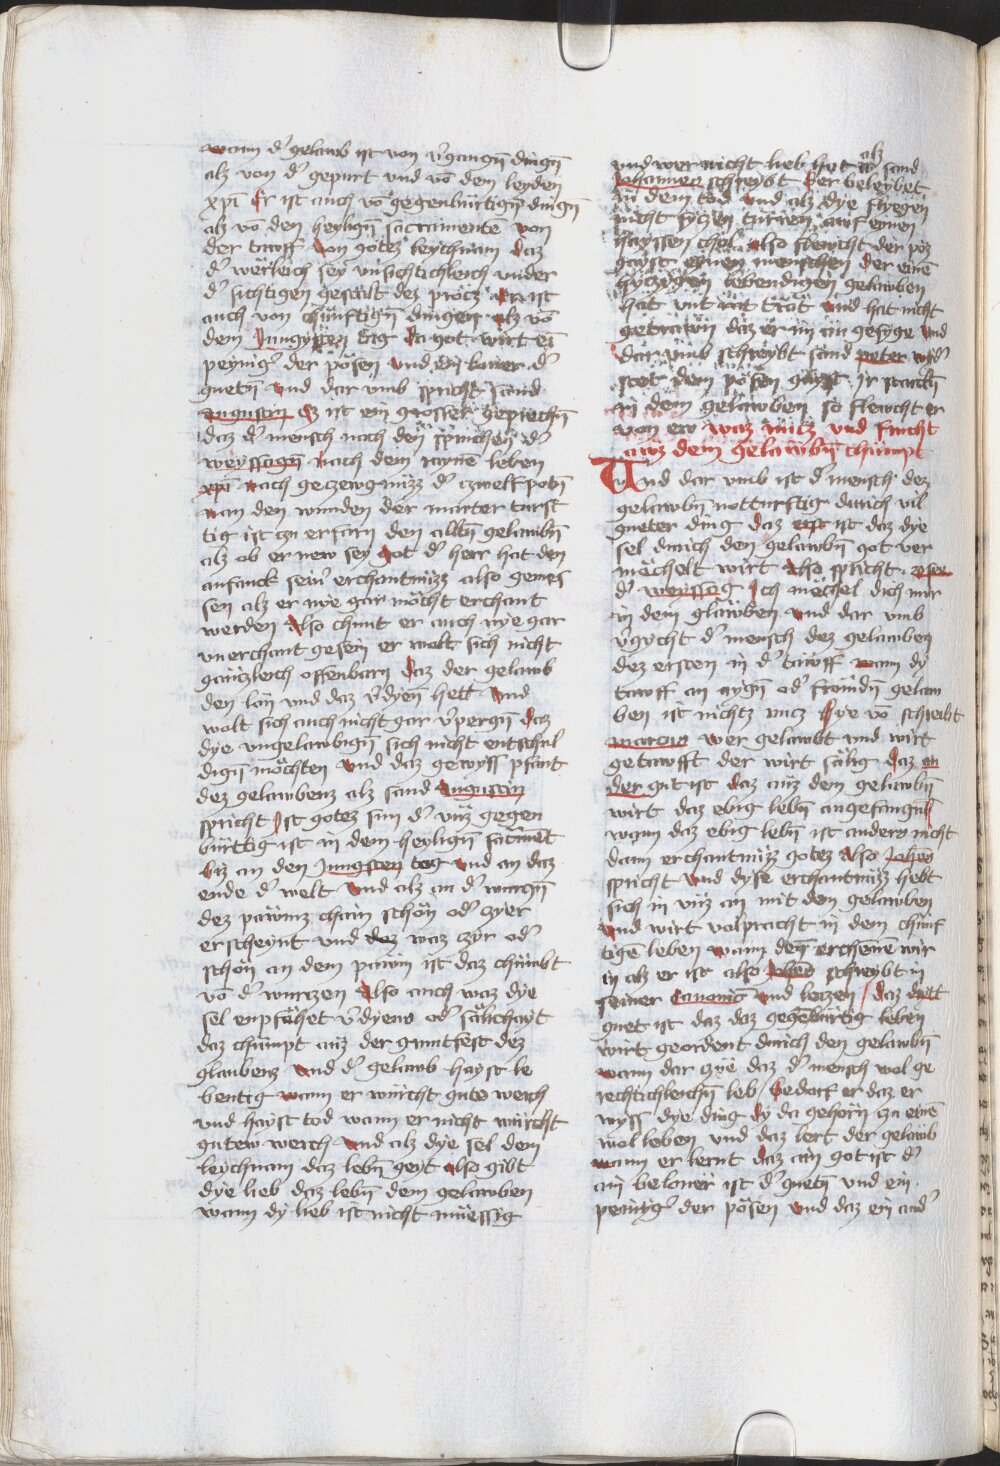 wann d' gelawb ist von v'gangn̄ dingn̄
alz von d' gepurt vnd vō dem leyden
xp̄i Er ist auch vō gegenbürtign̄ dingn̄
alz vō den heylign̄ sacramente von
der tawff von gotez leychnam daz
d' wërleich sey vnsichtichleich vnder
d' sichtigen gestalt dez protz Er ist
auch von chünftign̄ dingen alz vō
dem Jungsten tag da got wirt ei
peynig' der pösen vnd ein loner d'
guetn̄ vnd dar vmb spricht sand
augustin Ez ist ein grosser geprechn̄
daz d' mensch nach den sprüchen d'
weyssagn̄ nach dem rayne leben
xp̄i nach geczewgnüzz d' czwelfpotn̄
von den wunden der marter turst
tig ist zu erfarn den altn̄ gelawbn̄
alz ob er new sey got d' herr hat den
anfanck sein' erchantnüzz also gemes
sen alz er nye gar möcht erchant
werden Also chünt er auch nye gar
vnerchant gesein er wolt sich nicht
gänczleich offenbarn daz der gelawb
den lon vnd daz v'dyen̄ hett vnd
wolt sich auch nicht gar v'pergn̄ daz
dye vngelawbign̄ sich nicht entschul
dign̄ möchten vnd daz gewyss pfant
dez gelawbenz alz sand Augustin
spricht Ist gotez sun d' vnz gegen
bürttig ist in dem heylign̄ sacmēt
biz an den Jungsten tag vnd an daz
ende d' welt vnd alz an d' wurczn̄
dez pawmz chain schön od' czyer
erscheynt vnd daz waz czyr od'
schön an dem pawm ist daz chümbt
vō d' wurtzen Also auch waz dye
sel enpfahet v'dyens od' sälichayt
daz chümpt auz der gruntfest dez
glaubenz vnd d' gelawb hayst le
bentig wann er würcht gute werch
vnd hayst tod wann er nicht würcht
gutew werch vnd alz dye sel dem
leychnam daz lebn̄ geyt also gibt
dye lieb daz lebn̄ dem gelawben
wann dy lieb ist nicht müessig
vnd wer nicht lieb hat alz sand
Johannes schreybt Der beleybet
in dem tod vnd alz dye flyegen
nicht syczen turren auf eynen
hayssen also flewcht der pöz
gayst eynen menschen Der einē
hyczigen lebendigen gelawben
hat vnd hat nicht
getrawn daz er im an gesyge vnd
dar vmb schreybt sand peter wid'
stet dem pösen gayst Ir starckn̄
in dem gelawben so flewcht er
von ew waz nütz vnd frucht
awz dem gelawbn̄ chümpt
Vnd dar vmb ist d' mensch dez
gelawbn̄ notturftig durich vil
gueter ding daz erst ist daz dye
sel durich den gelawbn̄ got ver
mëchelt wirt Also spricht osee
d' weyssag Ich mëchel dich mir
in dem glawben vnd dar vmb
v'gycht d' mensch dez gelawben
dez ersten in d' tawff wann dy
tawff an aygn̄ od' fremdn̄ gelaw
ben ist nichtz nucz Hye vō schreibt
marcus wer gelawbt vnd wirt
getawfft der wirt sälig daz an
der gut ist daz auz dem gelawbn̄
wirt daz ebig lebn̄ angefangn̄
wann daz ebig lebn̄ ist anders nicht
dann erchantnüzz gotez Also Joh̄es
spricht vnd dyse erchantnüzz hebt
sich in vnz an mit dem gelawben
vnd wirt volpracht in dem chünf
tigē leben wann den̄ erchenne wir
in alz er ist also Joh̄es schreybt in
seiner Canonic vnd leczen / daz dritt
guet ist daz daz gegēbürtig leben
wirt geordent durich den gelawbn̄
wann dar czue daz d' mensch wol ge
rechtichleichn̄ leb / Bedorf er daz er
wyss dye ding dy da gehörn zu einē
wolleben vnd daz lert der gelawb
wann er lernt daz ain got ist d'
ain beloner ist d' guetn̄ vnd ein
peinig' der pösen vnd daz ein and'